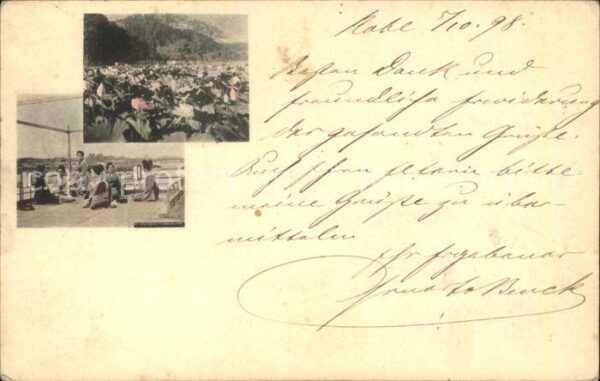 Kobe 7/10. 98.
Besten Dank und
freundliche Erwiderung
der gesandten Grüße.
Auch Ihren Eltern bitte
meine Grüße zu über-
mitteln
Ihr ergebener